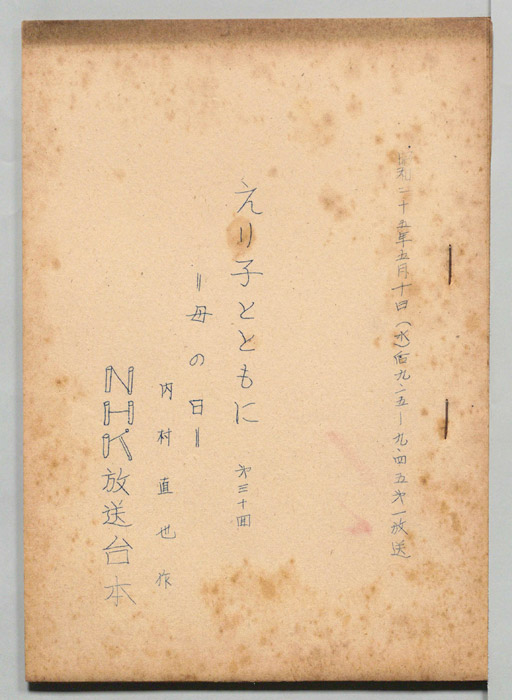 昭和二十五年五月十日(水)后九・二五―九・四五第一放送
えり子とともに 第三十回
=母の日=
内村直也作
NHK放送台本